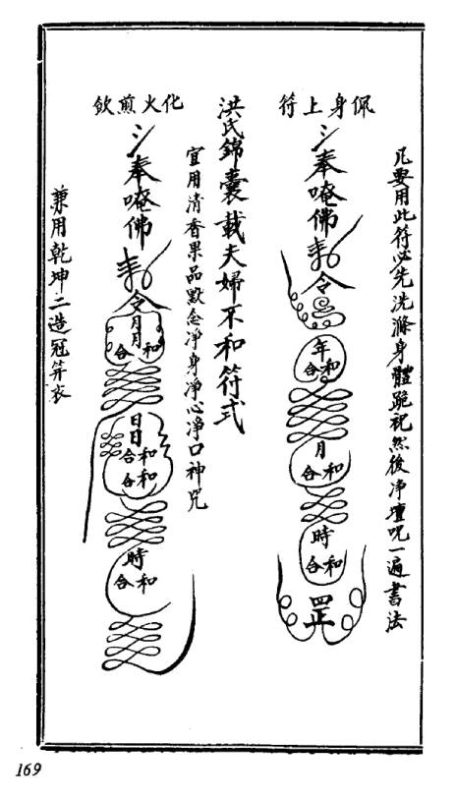 凡要用此符必先洗滌身體跪祝然後净壇呪一遍書法
佩身上符
奉唵佛
令
年
合和
月
合和
時
合和
罡
洪氏錦囊載夫婦不和符式
宜用清香果品默念净身净心净口神咒
化火煎飲
奉唵佛
令
月月
合和
日日
合和
合和
時
合和
兼用乾坤二造冠笄衣
169